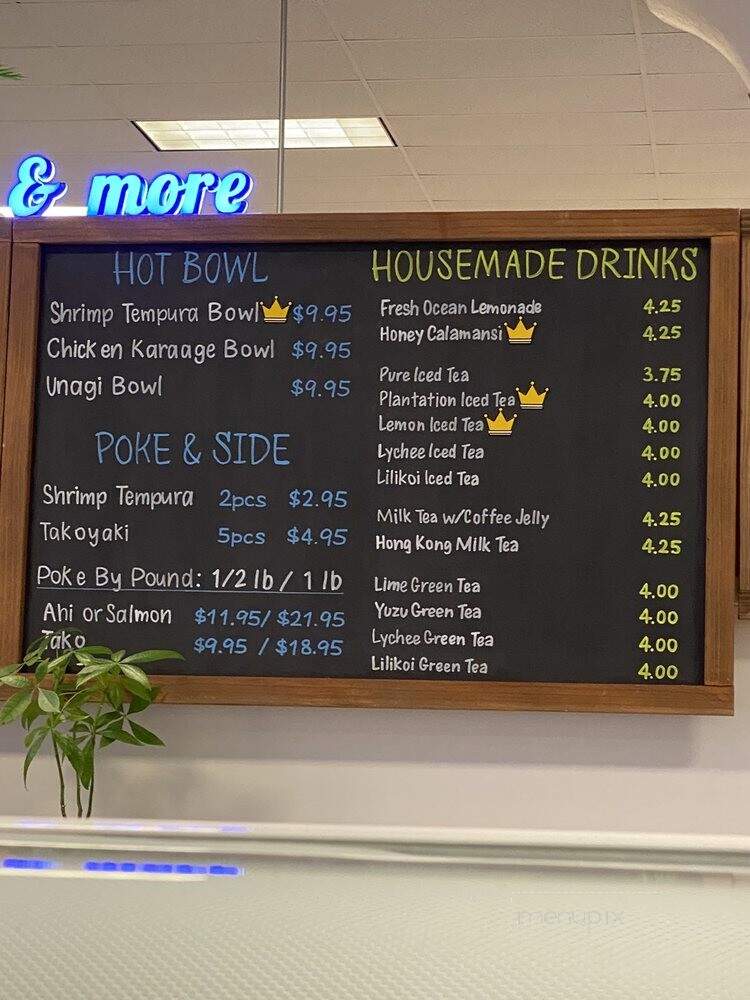 & more
HOT BOWL
Shrimp Tempura Bowl $9.95
Chicken Karaage Bowl $9.95
Unagi Bowl $9.95
POKE & SIDE
Shrimp Tempura 2pcs $2.95
Takoyaki 5pcs $4.95
Poke By Pound: 1/2 lb / 1 lb
Ahi or Salmon $11.95/ $21.95
Tako $9.95 / $18.95
HOUSEMADE DRINKS
Fresh Ocean Lemonade 4.25
Honey Calamansi 4.25
Pure Iced Tea 3.75
Plantation Iced Tea 4.00
Lemon Iced Tea 4.00
Lychee Iced Tea 4.00
Lilikoi Iced Tea 4.00
Milk Tea w/Coffee Jelly 4.25
Hong Kong Milk Tea 4.25
Lime Green Tea 4.00
Yuzu Green Tea 4.00
Lychee Green Tea 4.00
Lilikoi Green Tea 4.00
menupix